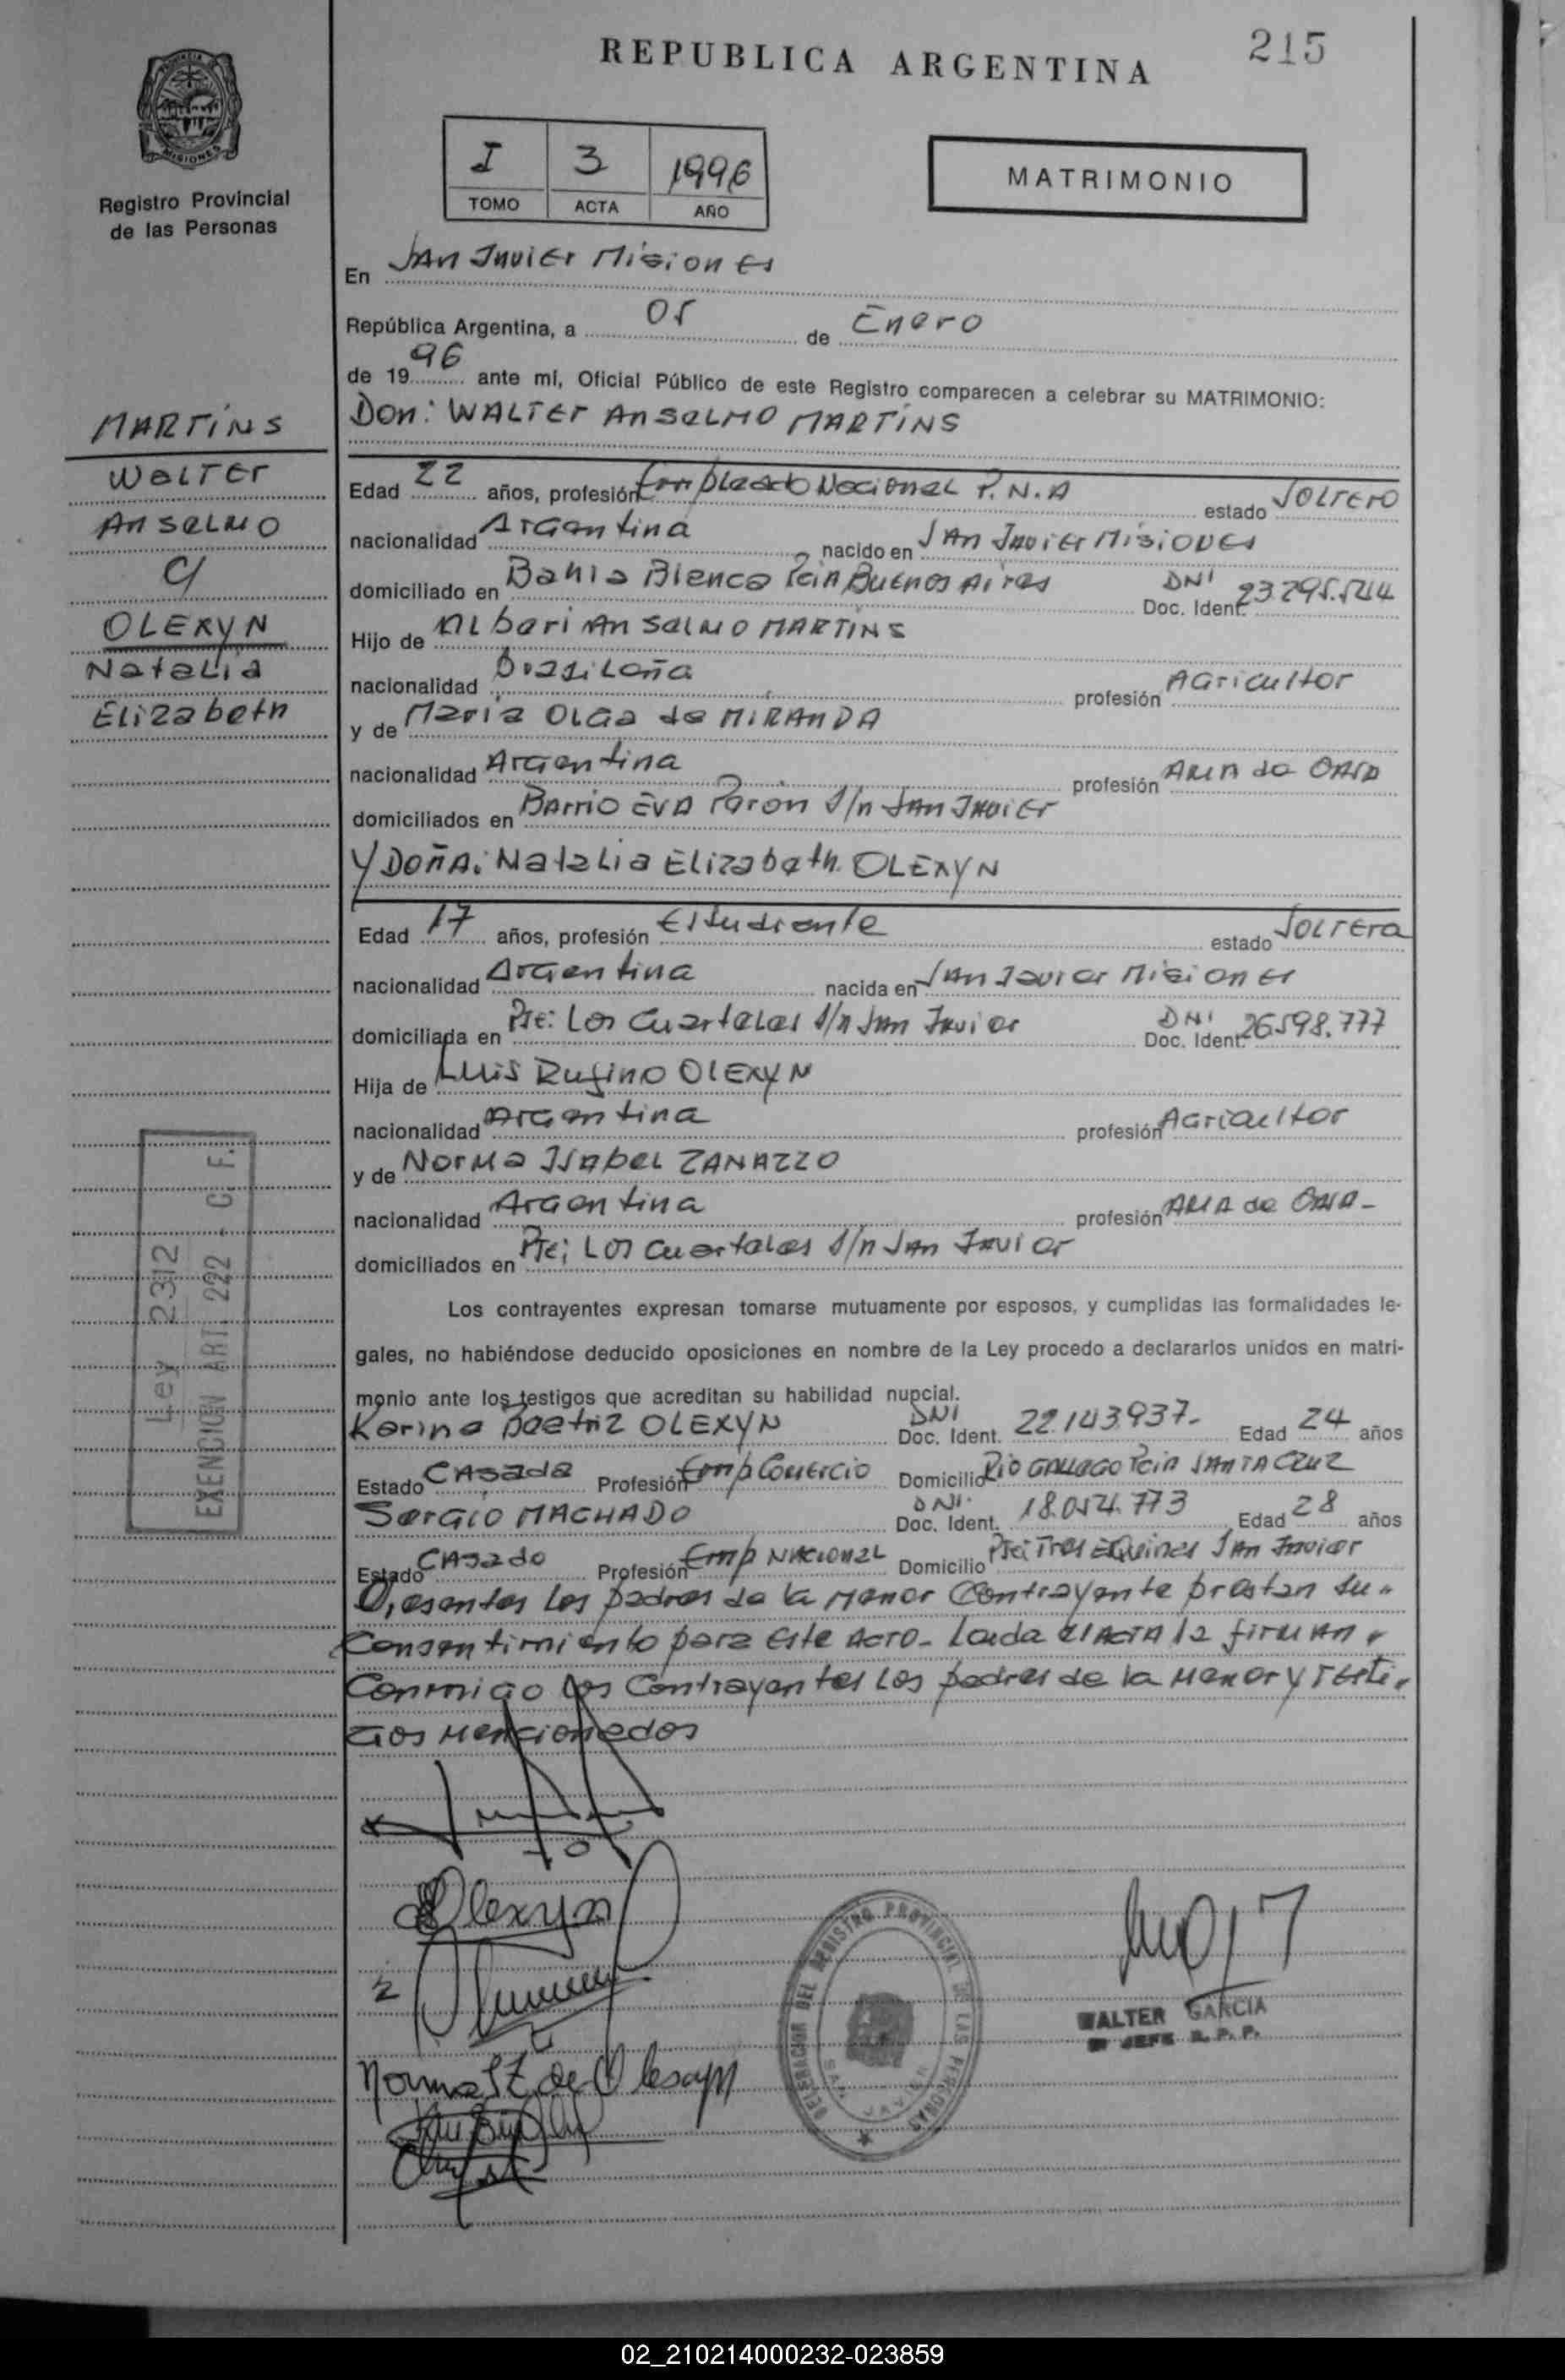 215
REPUBLICA ARGENTINA
MISIONES
Registro Provincial
de las Personas
I 3 1996
TOMO ACTA AÑO
MATRIMONIO
En San Javier Misiones
República Argentina, a 05 de Enero
de 1996 ante mí, Oficial Público de este Registro comparecen a celebrar su MATRIMONIO:
MARTINS
Walter
Anselmo
c/
OLEXYN
Natalia
Elizabeth
Don: WALTER AnSELMO MARTINS
Edad 22 años, profesión Empleado Nacional P.N.A estado Soltero
nacionalidad Argentina nacido en San Javier Misiones
domiciliado en Bahia Blanca Pcia Buenos Aires DNI Doc. Ident. 23.295.544
Hijo de Albari Anselmo MARTINS
nacionalidad Brasileña profesión Agricultor
y de Maria Olga de MIRANDA
nacionalidad Argentina profesión Ama de Casa
domiciliados en Barrio Eva Peron S/n San Javier
Y DOÑA: Natalia Elizabeth OLEXYN
Edad 17 años, profesión Estudiante estado Soltera
nacionalidad Argentina nacida en San Javier Misiones
domiciliada en Pje: Los Cuarteles S/n San Javier DNI Doc. Ident. 26.598.777
Hija de Luis Rufino OLEXYN
nacionalidad Argentina profesión Agricultor
y de Norma Isabel ZANAZZO
nacionalidad Argentina profesión Ama de Casa-
domiciliados en Pje; Los Cuarteles S/n San Javier
Los contrayentes expresan tomarse mutuamente por esposos, y cumplidas las formalidades le-
gales, no habiéndose deducido oposiciones en nombre de la Ley procedo a declararlos unidos en matri-
monio ante los testigos que acreditan su habilidad nupcial.
Karina Beatriz OLEXYN DNI Doc. Ident. 22.143.937- Edad 24 años
Estado Casada Profesión Emp Comercio Domicilio Rio Gallego Pcia SANTA CRUZ
Sergio MACHADO DNI. Doc. Ident. 18.054.773 Edad 28 años
Estado Casado Profesión Emp Nacional Domicilio Pje: Tres Esquinas San Javier
Presentes los padres de la menor Contrayente prestan su-
Consentimiento para este Acto- Leida el Acta la firman
Conmigo los Contrayentes los padres de la menor y Testi-
gos mencionados
Ley 2312
EXENCION ART. 222 - C. F.
Olexyn
Norma I Z de Olexyn
DELEGACION DEL REGISTRO PROVINCIAL DE LAS PERSONAS
SAN JAVIER
WALTER GARCIA
JEFE R. P. P.
02_210214000232-023859